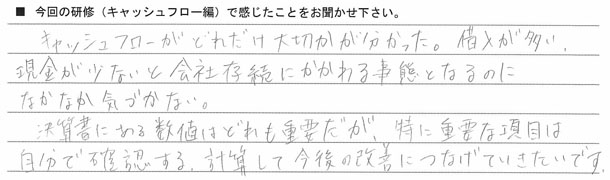 ■ 今回の研修（キャッシュフロー編）で感じたことをお聞かせ下さい。
キャッシュフローがどれだけ大切かが分かった。借入が多い、
現金が少ないと会社存続にかかわる事態となるのに
なかなか気づかない。
決算書にある数値はどれも重要だが、特に重要な項目は
自分で確認する、計算して今後の改善につなげていきたいです。